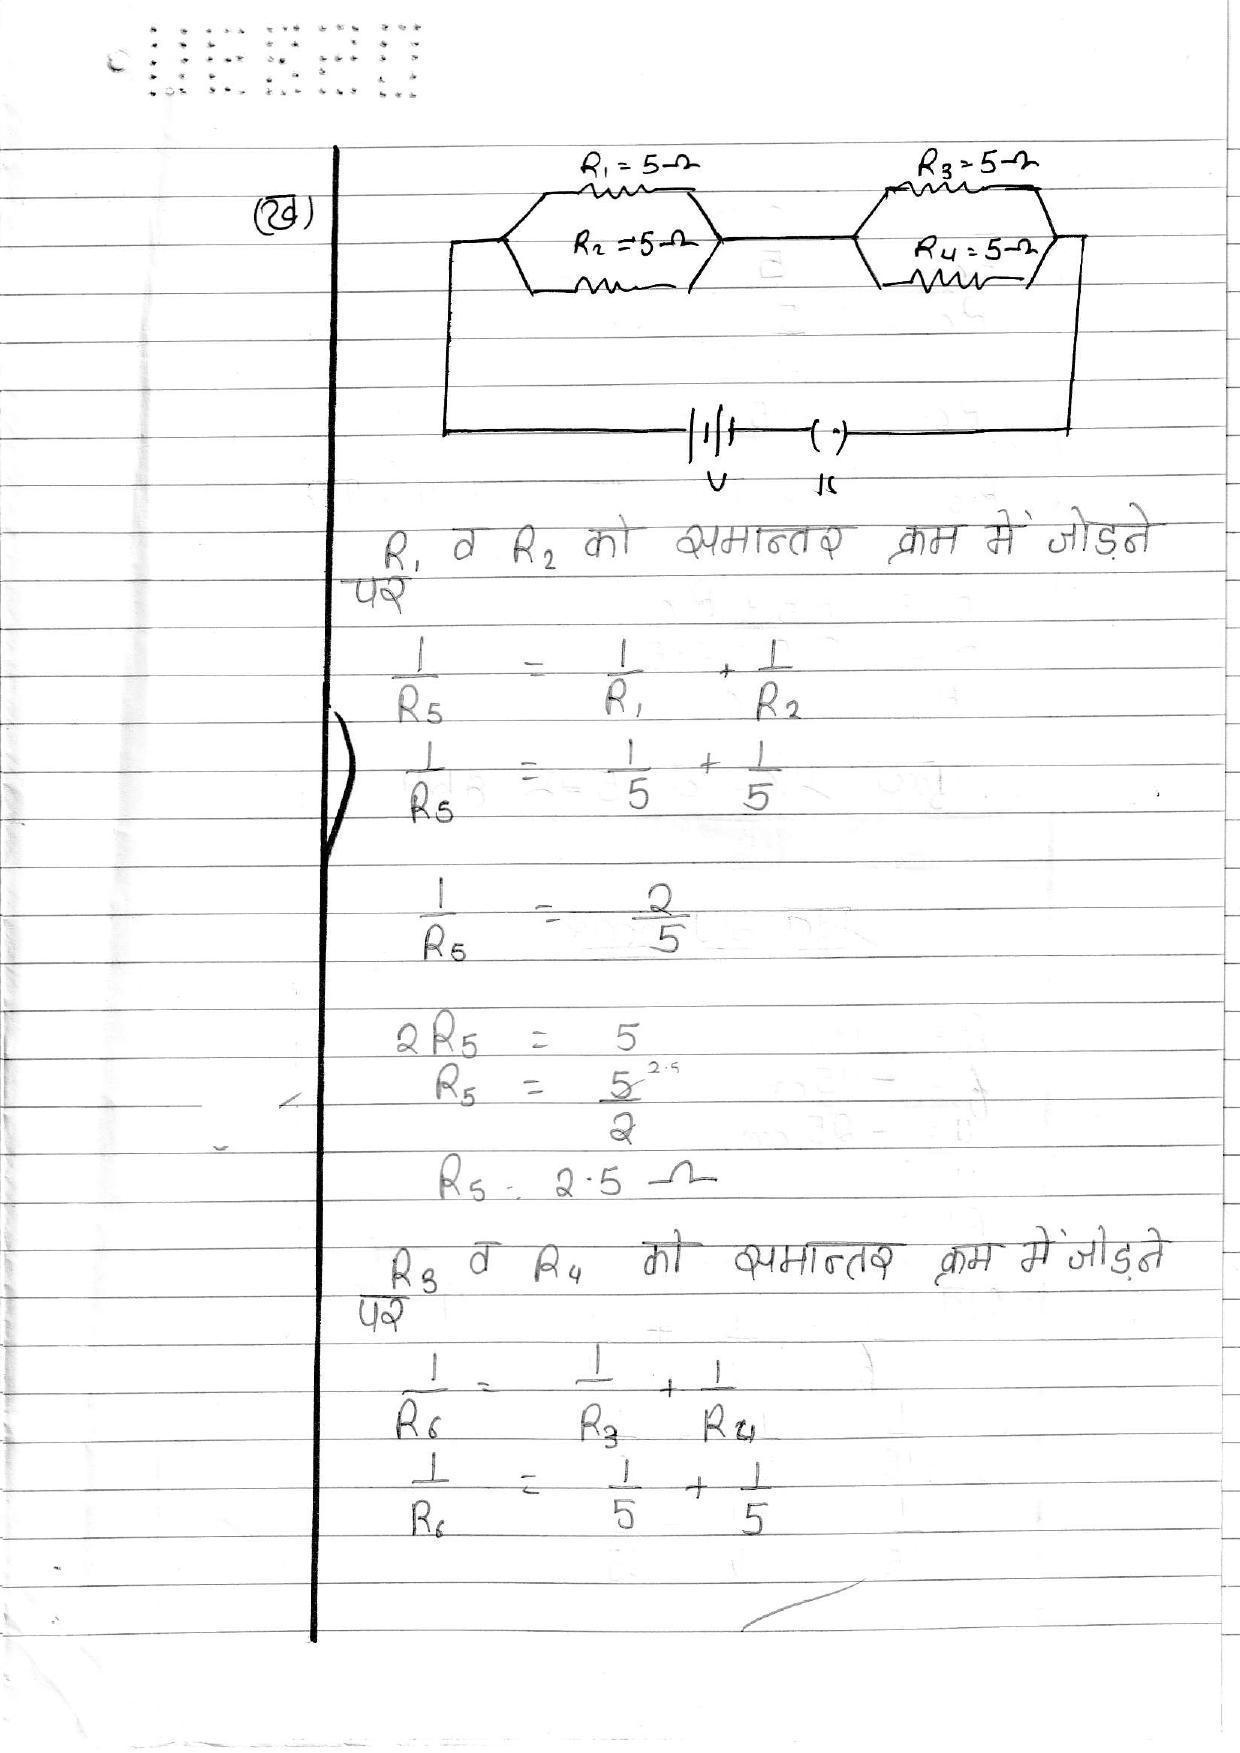 R₁ = 5Ω R₃ = 5Ω
(ख)
R₂ = 5Ω R₄ = 5Ω
V K
R₁ व R₂ को समान्तर क्रम में जोड़ने
पर
1/R₅ = 1/R₁ + 1/R₂
1/R₅ = 1/5 + 1/5
1/R₅ = 2/5
2R₅ = 5
R₅ = 5/2 2.5
R₅ = 2.5 Ω
R₃ व R₄ को समान्तर क्रम में जोड़ने
पर
1/R₆ = 1/R₃ + 1/R₄
1/R₆ = 1/5 + 1/5